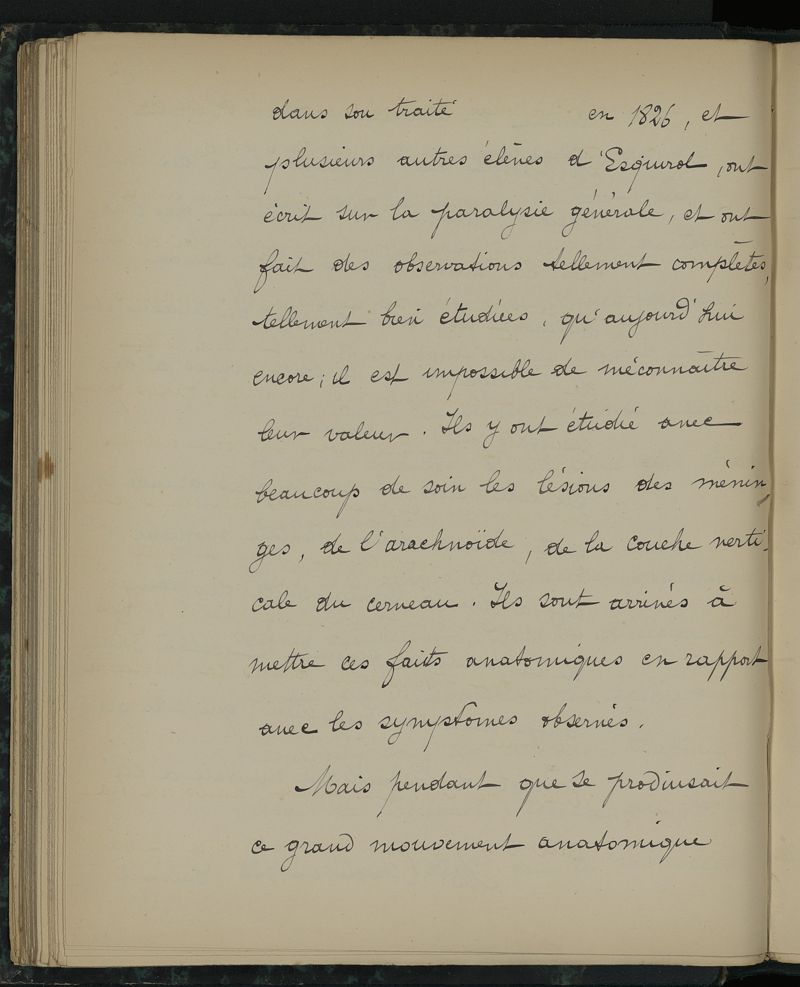 dans son traité en 1826, et
plusieurs autres élèves d'Esquirol, ont
écrit sur la paralysie générale, et ont
fait des observations tellement complètes,
tellement bien étudiées, qu'aujourd'hui
encore, il est impossible de méconnaître
leur valeur. Ils y ont étudié avec
beaucoup de soin les lésions des ménin-
ges, de l'arachnoïde, de la couche verti-
cale du cerveau. Ils sont arrivés à
mettre ces faits anatomiques en rapport
avec les symptômes observés.
Mais pendant que se produisait
ce grand mouvement anatomique